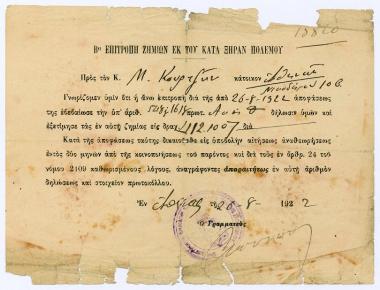 Βα ΕΠΙΤΡΟΠΗ ΖΗΜΙΩΝ ΕΚ ΤΟΥ ΚΑΤΑ ΞΗΡΑΝ ΠΟΛΕΜΟΥ
Πρὸς τὸν Κ. Μ. κάτοικον Ἀθηνῶν
Γνωρίζομεν ὑμῖν ὅτι ἡ ἄνω ἐπιτροπὴ διὰ τῆς ἀπὸ 26-8-1922 ἀποφάσεως
της ἐβεβαίωσε τὴν ὑπ' ἀριθ. πρωτ. δήλωσιν ὑμῶν καὶ
ἐξετίμησε τὰς ἐν αὐτῇ ζημίας εἰς δραχ. διὰ
Κατὰ τῆς ἀποφάσεως ταύτης δικαιοῦσθε εἰς ὑποβολὴν αἰτήσεως ἀναθεωρήσεως
ἐντὸς δύο μηνῶν ἀπὸ τῆς κοινοποιήσεως τοῦ παρόντος καὶ διὰ τοὺς ἐν ἄρθρ. 24 τοῦ
νόμου 2109 καθωρισμένους, λόγους, ἀναγράφοντες ἀπαραιτήτως ἐν αὐτῇ ἀριθμὸν
δηλώσεως καὶ στοιχεῖον πρωτοκόλλου.
Ἐν τῇ 26-8 1922
Ὁ Γραμματεὺς